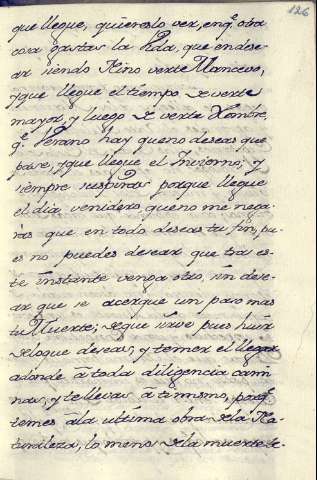 126
que llegue, quiereslo ver, enq.e otra
cosa gastas la Vida, que en dese-
ar siendo Nino verte Mancevo,
yque llegue el tiempo de verte
mayor, y luego de verte Hombre,
q.e Verano hay que no deseas que
pase, yque llegue el Invierno; y
siempre suspiras porque llegue
el dia venidero, que no me nega-
ras que en todo deseas tu fin, pu-
es no puedes desear que tras es-
te instante venga otro, sin dese-
ar que se acerque un paso mas
tu Muerte; deque sirve pues huir
deloque deseas, y temer el llegar
adonde à toda diligencia cami
nas, y te llevas à ti mismo, porq.e
temes àla ultima obra dela Na-
turaleza, lo menos dela muerte te-